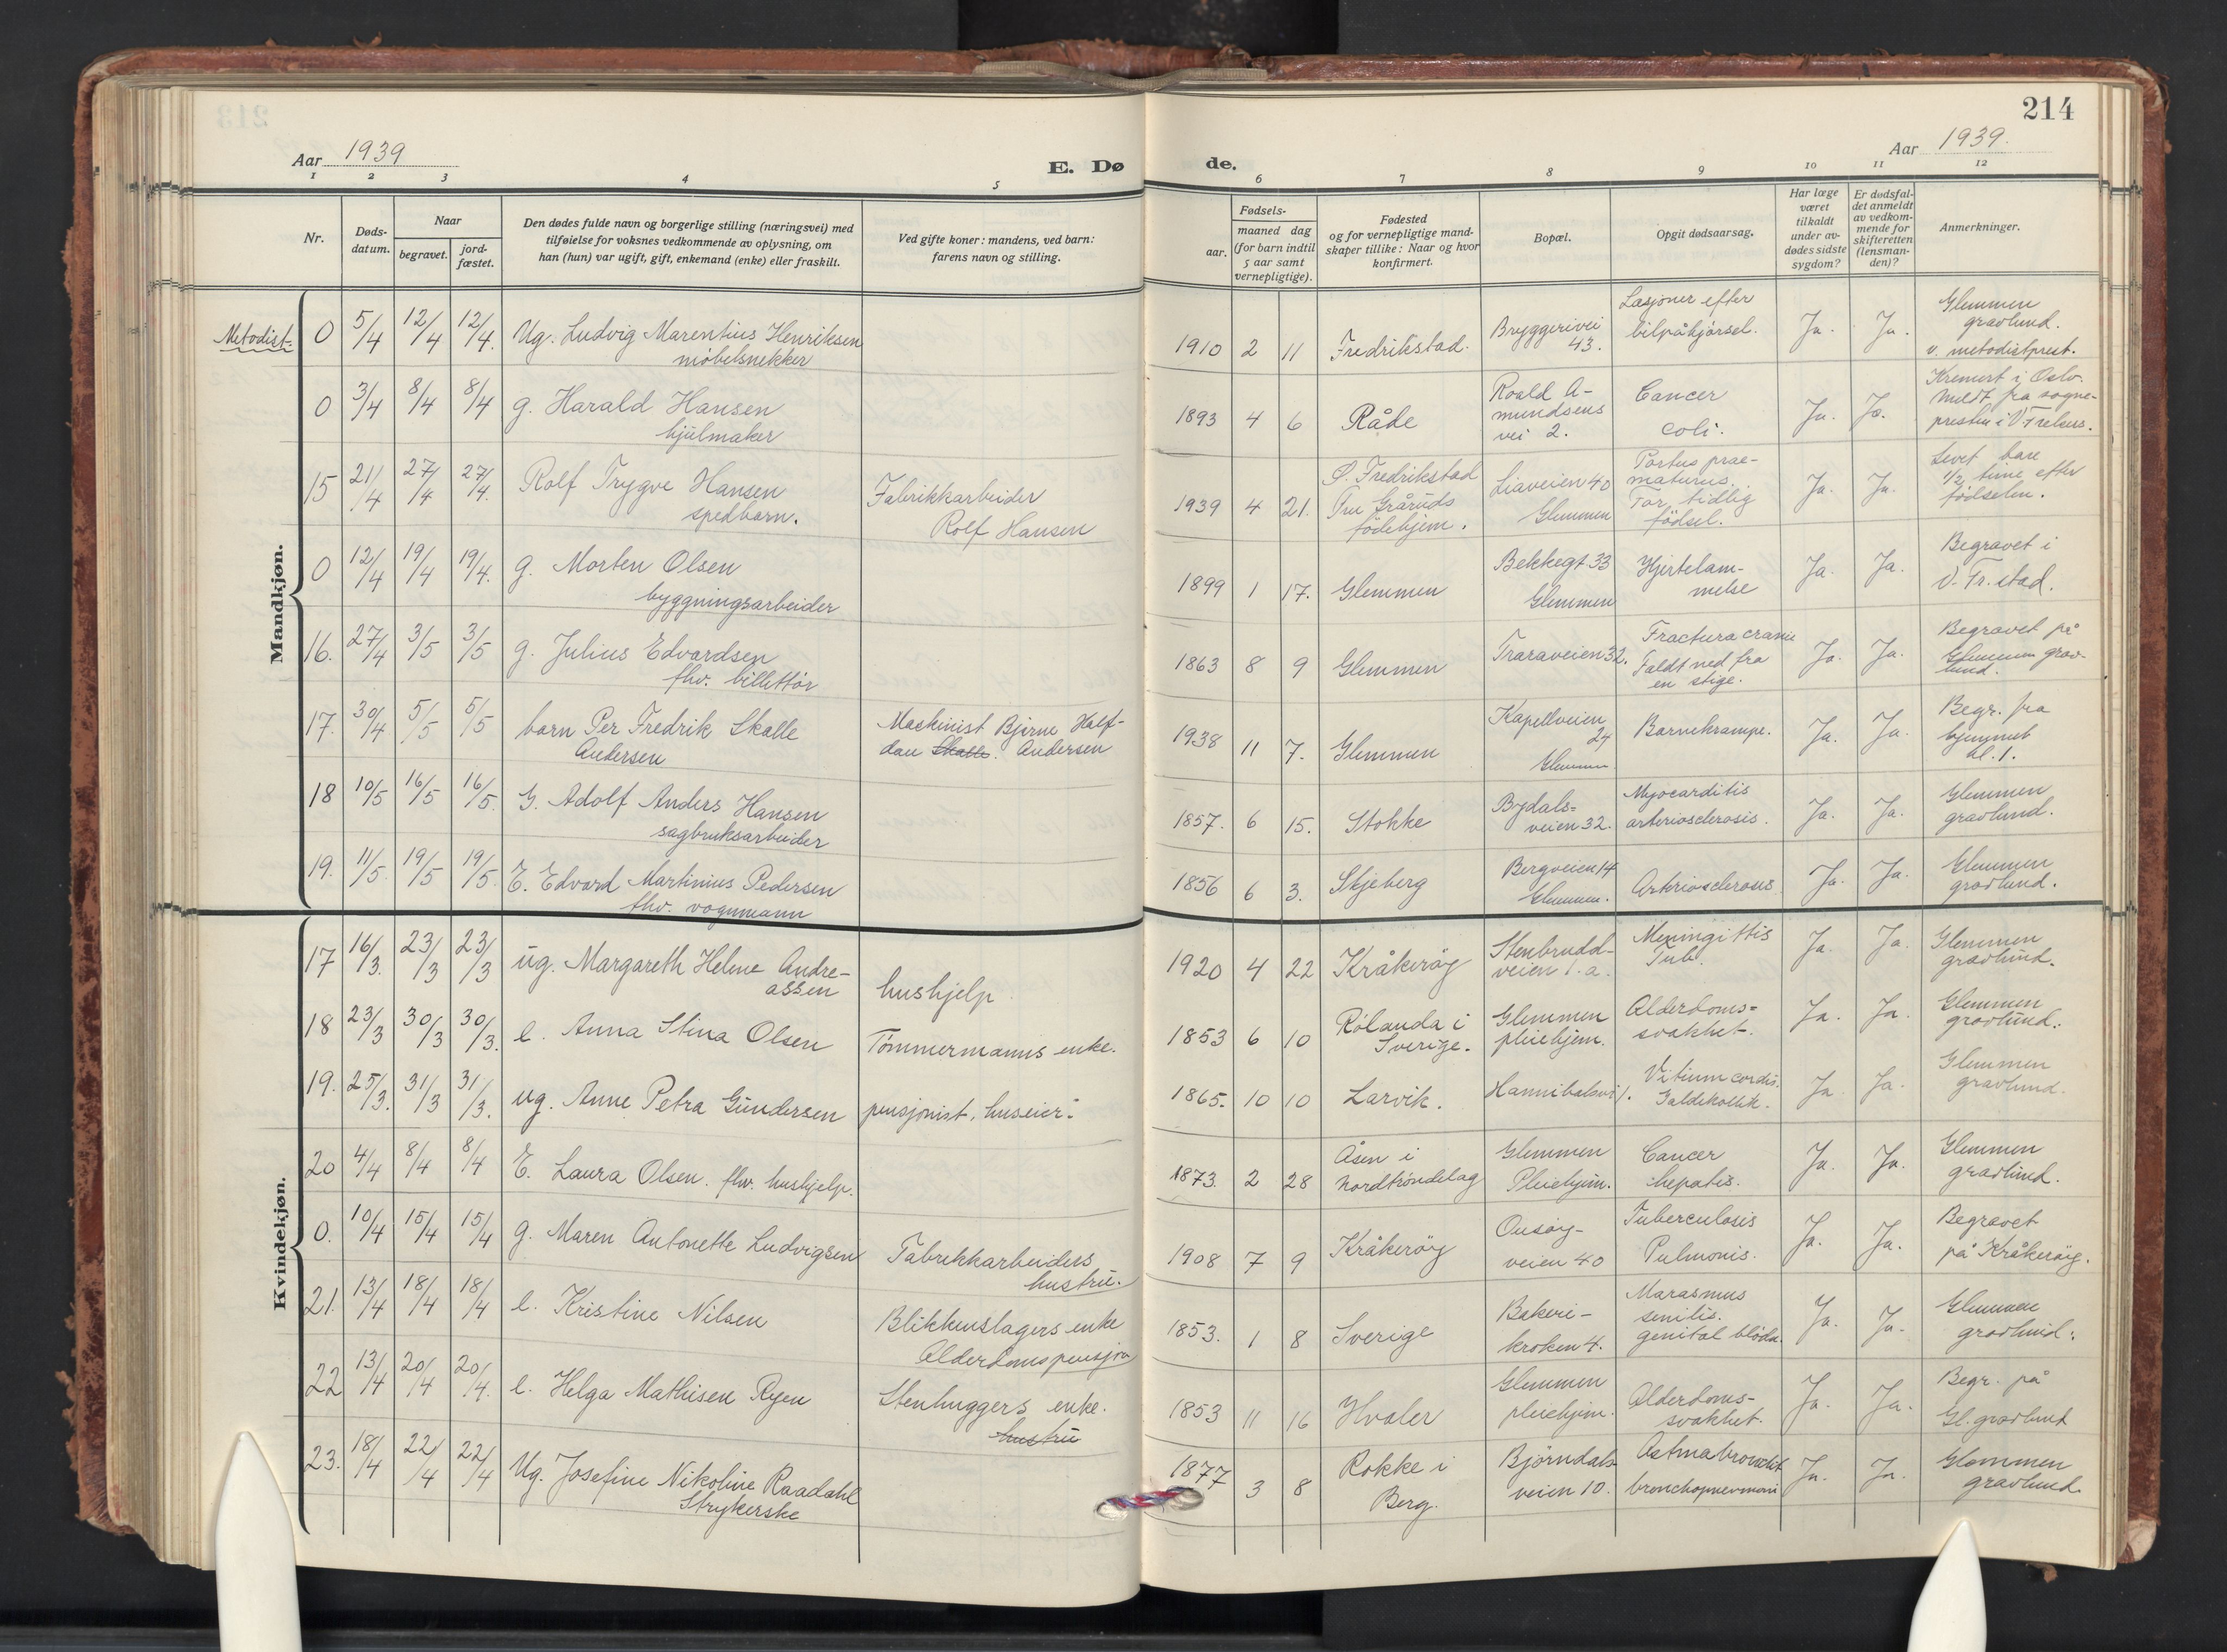 213
214
Aar 1939
E. Dø
de.
Aar 1939.
1 2 3 4 5 6 7 8 9 10 11 12
Nr.
Døds-
datum.
Naar
begravet.
jord-
fæstet.
Den dødes fulde navn og borgerlige stilling (næringsvei) med
tilføielse for voksnes vedkommende av oplysning, om
han (hun) var ugift, gift, enkemand (enke) eller fraskilt.
Ved gifte koner: mandens, ved barn:
farens navn og stilling.
Fødsels-
aar.
maaned dag
(for barn indtil
5 aar samt
vernepligtige).
Fødested
og for vernepligtige mand-
skaper tillike: Naar og hvor
konfirmert.
Bopæl.
Opgit dødsaarsag.
Har læge
været
tilkaldt
under av-
dødes sidste
sygdom?
Er dødsfal-
det anmeldt
av vedkom-
mende for
skifteretten
(lensman-
den)?
Anmerkninger.
Mandkjøn.
Metodist.
0 5/4 12/4 12/4. Ug. Ludvig Marentius Henriksen
møbelsnekker
1910 2 11 Fredrikstad.
Bryggerivei
43.
Læsjoner efter
bilpåkjørsel.
Ja. Ja.
Glemmen
gravlund.
v. metodistprest.
0 3/4 8/4 8/4 g. Harald Hansen
hjulmaker
1893 4 6 Råde
Roald A-
mundsens
vei 2.
Cancer
coli.
Ja. Ja.
Kremert i Oslo.
Meldt fra sogne-
presten i V. Fredrs.
15 21/4 27/4 27/4. Rolf Trygve Hansen
spedbarn.
Fabrikkarbeider
Rolf Hansen
1939 4 21.
Ø. Fredrikstad
Fru Gråruds
fødehjem.
Liaveien 40
Glemmen
Partus prae-
maturus.
For tidlig
fødsel.
Ja. Ja.
Levet bare
1/2 time efter
fødselen.
0 12/4 19/4 19/4. g. Morten Olsen
byggningsarbeider
1899 1 17. Glemmen
Bekkegt 33
Glemmen
Hjertelam-
melse
Ja. Ja.
Begravet i
V. Fr.stad.
16. 27/4 3/5 3/5 g. Julius Edvardsen
fhv. billettør
1863 8 9 Glemmen
Traraveien 32.
Fractura cranii
Faldt ned fra
en stige.
Ja. Ja.
Begravet på
Glemmen grav-
lund.
17. 30/4 5/5 5/5 barn Per Fredrik Skalle
Andersen
Maskinist Bjirne Half-
dan Skalle. Andersen
1938 11 7. Glemmen
Kapellveien
24
Glemmen
Barnekrampe.
Ja. Ja.
Begr. fra
hjemmet
kl. 1.
18 10/5 16/5 16/5. G. Adolf Anders Hansen
sagbruksarbeider
1857. 6 15. Stokke
Bydals-
veien 32.
Myocarditis
arteriosclerosis.
Ja. Ja.
Glemmen
gravlund.
19. 11/5 19/5 19/5. E. Edvard Martinius Pedersen
fhv. vognmann
1856 6 3. Skjeberg
Bergveien 14
Glemmen.
Arteriosclerosis
Ja. Ja.
Glemmen
gravlund.
Kvindekjøn.
17 16/3. 23/3 23/3 ug. Margareth Helene Andre-
assen
hushjelp
1920 4 22 Kråkerøy
Stenbrudd-
veien 1.a.
Meningittis
Tub.
Ja. Ja.
Glemmen
gravlund.
18 23/3 30/3 30/3. e. Anna Stina Olsen
Tømmermanns enke.
1853 6 10
Rølanda i
Sverige.
Glemmen
pleiehjem.
Alderdoms-
svakhet.
Ja. Ja.
Glemmen
gravlund.
19. 25/3. 31/3 31/3. ug. Anne Petra Gundersen
pensjonist, huseier.
1865. 10 10 Larvik.
Hannibalsvi 1.
Vitium cordis.
Galdekolikk.
Ja Ja.
Glemmen
gravlund.
20 4/4 8/4 8/4 E. Laura Olsen. fhv. hushjelp.
1873. 2 28
Åsen i
Nordtrøndelag
Glemmen
Pleiehjem.
Cancer
hepatis.
Ja. Ja.
Glemmen
gravlund.
0. 10/4 15/4 15/4 g. Maren Antonette Ludvigsen
Fabrikkarbeiders
hustru.
1908 7 9 Kråkerøy
Onsøy-
veien 40
Tuberculosis
Pulmonis.
Ja. Ja.
Begravet
på Kråkerøy.
21. 13/4 18/4 18/4 e. Kristine Nilsen
Blikkenslagers enke
Alderdomspensjon
1853. 1 8 Sverige
Bakeri-
kroken 4.
Marasmus
senilis.
genital blødn.
Ja. Ja.
Glemmen
gravlund.
22 13/4 20/4 20/4. e. Helga Mathisen Ryen
Stenhuggers enke.
hustru
1853 11 16 Hvaler
Glemmen
pleiehjem.
Alderdoms-
svakhet.
Ja. Ja.
Begr. på
Gl. gravlund
23. 18/4 22/4 22/4 Ug. Josefine Nikoline Raadahl
Strykerske
1877 3 8
Rokke i
Berg.
Bjørndals-
veien 10.
Astma bronchit
bronchopnevmoni
Ja. Ja.
Glemmen
gravlund.